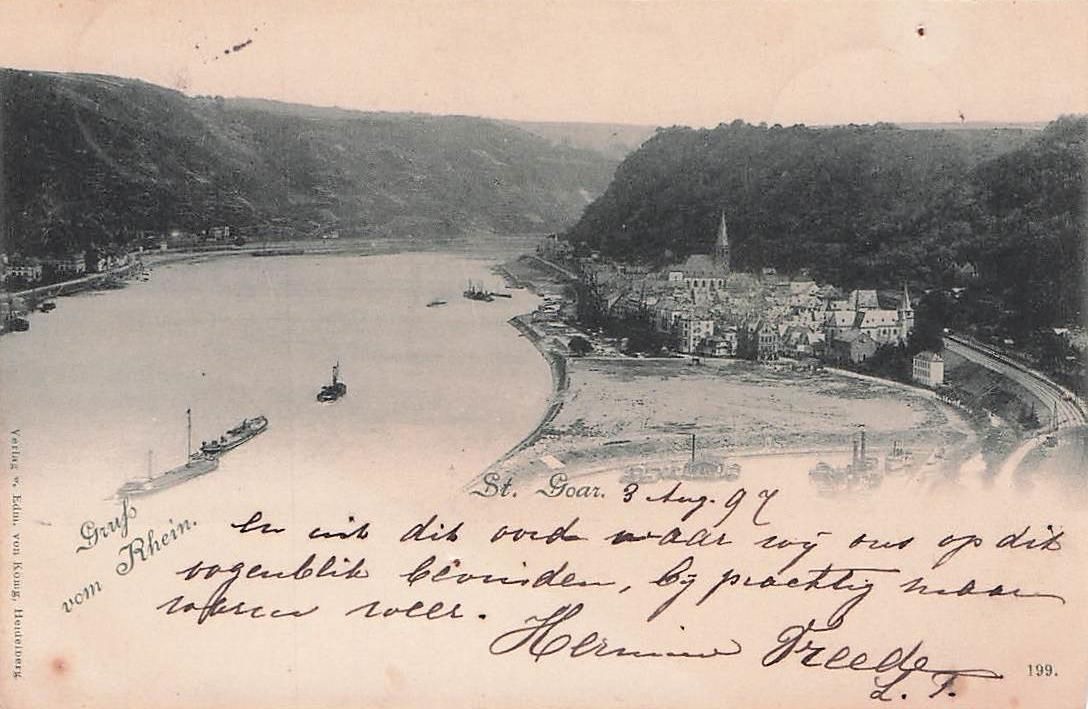 St. Goar. 3 Aug. 97
Gruß
vom Rhein.
En uit dit oord waar wij ons op dit
oogenblik bevinden, bij prachtig maar
warm weer.
Hermine Treede
L. T.
Verlag v. Edm. von König, Heidelberg.
199.